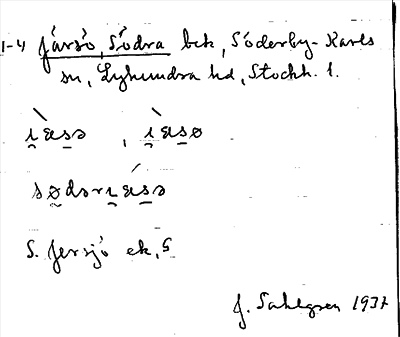 1-4 Järsö, Södra bck, Söderby-Karls
sn, Lyhundra hd, Stockh. l.
i̯ȁsə , i̯ȁsø
sødəri̯ásə
S. Jersjö ek, S
J. Sahlgren 1937